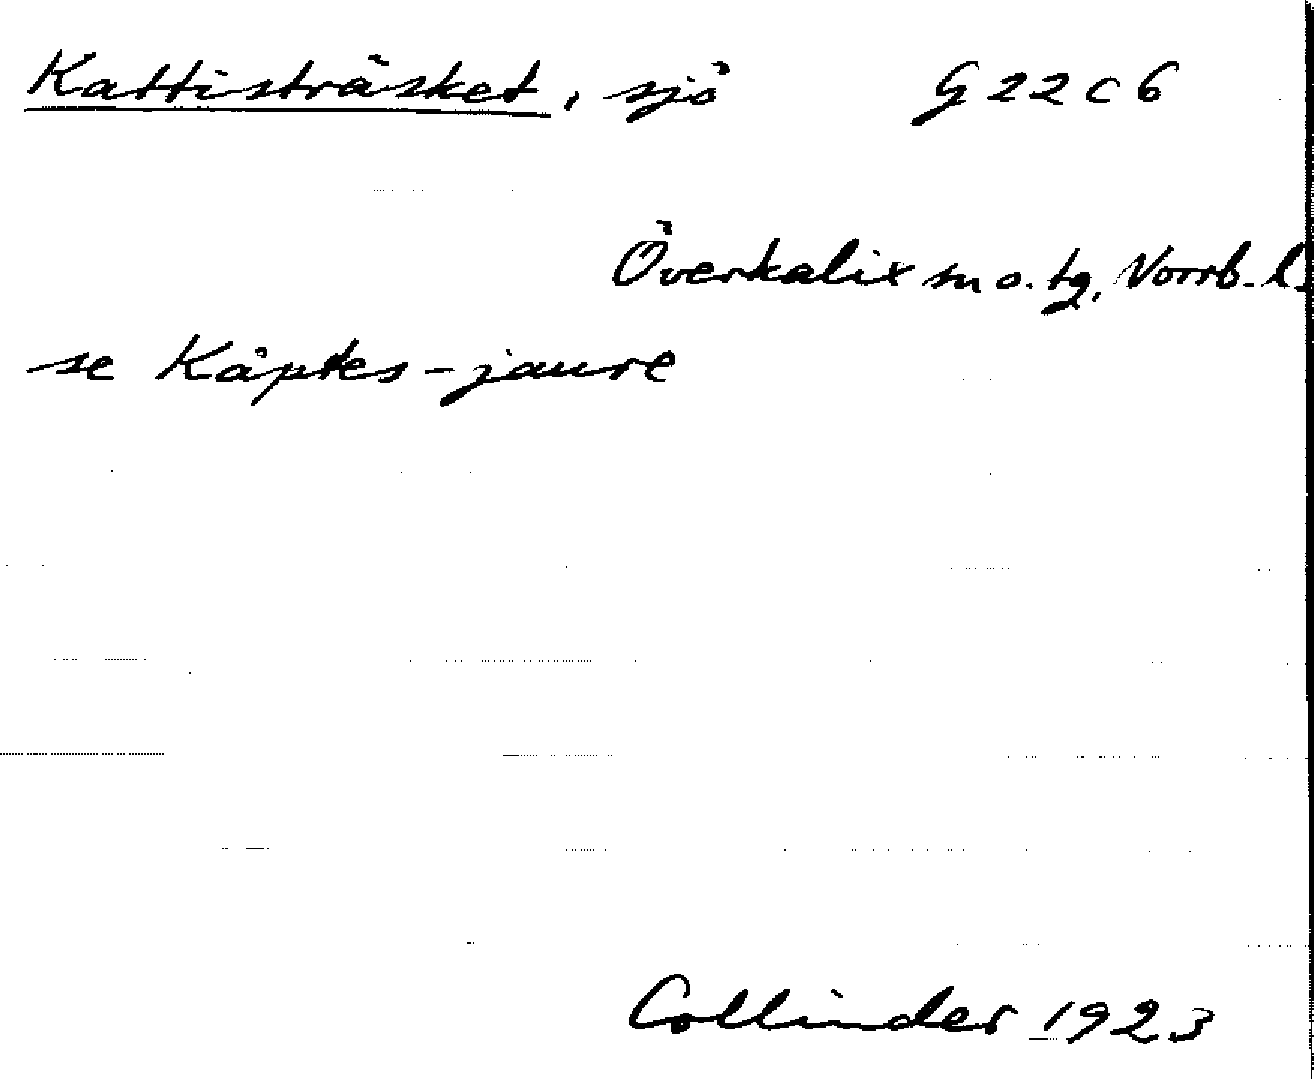 Kattisträsket, sjö G 22 c 6
Överkalix sn o. tg, Norrb. l.
se Kåptes-jaure
Collinder 1923